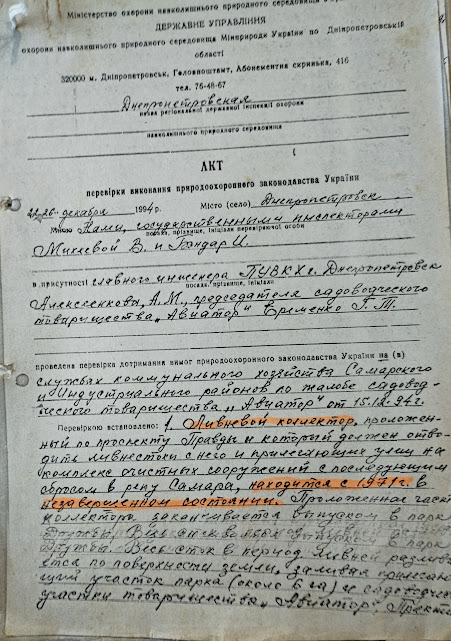 Міністерство охорони навколишнього природного середовища
ДЕРЖАВНЕ УПРАВЛІННЯ
охорони навколишнього природного середовища Мінприроди України по Дніпропетровській
області
320000 м. Дніпропетровськ, Головпоштамт, Абонементна скринька, 416
тел. 75-48-67
Днепропетровская
назва регіональної державної інспекції охорони
навколишнього природного середовища
АКТ
перевірки виконання природоохоронного законодавства України
22-26 декабря 1994 р. Місто (село) Днепропетровск
Мною Нами, государственными инспекторами
посада, прізвище, ініціали перевіряючої особи
Михеевой В. и Бондар И.
в присутності главного инженера ПУВКХ г. Днепропетровск
посада, прізвище, ініціали
Алексеенковы А.М., председателя садоводческого
товарищества „Авиатор" Еременко Г.Т.
проведена перевірка дотримання вимог природоохоронного законодавства України на (в)
службах коммунального хозяйства Самарского
и Индустриального районов по жалобе садовод-
ческого товарищества „Авиатор" от 15.12.94г.
Перевіркою встановлено: 1. Ливневой коллектор, проложен-
ный по проспекту Правды и который должен отво-
дить ливнестоки с него и прилегающих улиц на
комплекс очистных сооружений с последующим
сбросом в реку Самара, находится с 1971г. в
незавершенном состоянии. Проложенная часть
коллектора, заканчивается выпуском в парк
Дружбы. Весь сток в период ливней разлива-
ется по поверхности земли, заливая прилегаю-
щий участок парка (около 6 га) и садоводческие
участки товарищества „Авиатор".